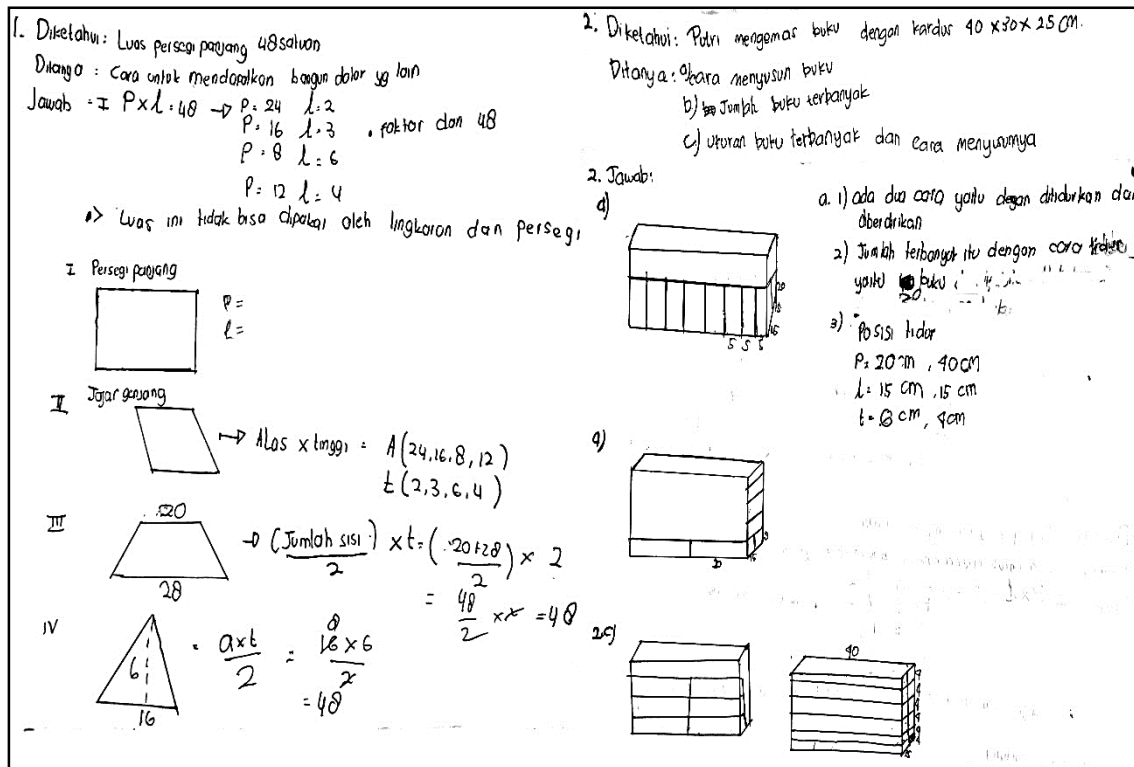 1. Diketahui: Luas persegi panjang 48 satuan
Ditanya : Cara untuk mendapatkan bangun datar yg lain
Jawab = I P x l = 48 → P = 24 l = 2
P = 16 l = 3 . faktor dari 48
P = 8 l = 6
P = 12 l = 4
Luas ini tidak bisa dipakai oleh lingkaran dan persegi
I Persegi panjang
P =
l =
II Jajar genjang
→ Alas x tinggi = A (24, 16, 8, 12)
t (2, 3, 6, 4)
III
20
28
→ (Jumlah sisi) / 2 x t = (20 + 28) / 2 x 2
= 48 / 2 x 2 = 48
IV
6
16
= a x t / 2 = 16 x 6 / 2
8
= 48
2. Diketahui: Putri mengemas buku dengan kardus 40 x 30 x 25 cm.
Ditanya: a) cara menyusun buku
b) Jumlah buku terbanyak
c) ukuran buku terbanyak dan cara menyusunnya
2. Jawab:
a)
5 5 5
15
20
a. 1) ada dua cara yaitu dengan ditidurkan dan
diberdirikan
2) Jumlah terbanyak itu dengan cara
yaitu buku
20
3) Posisi tidur
P = 20 cm, 40 cm
l = 15 cm, 15 cm
t = 6 cm, 4 cm
a)
20
15
2c)
40